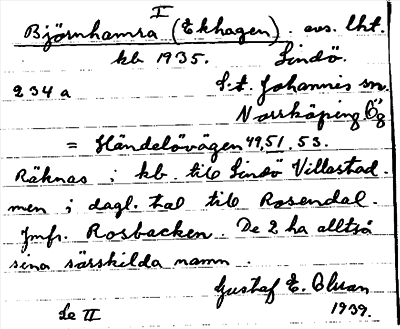 I
Björnhamra (Ekhagen). avs. lht.
kb 1935. Lindö.
234a S:t. Johannis sn.
Norrköping Ög
= Händelövägen 49, 51, 53.
Räknas i kb till Lindö Villastad.
men i dagl. tal till Rosendal.
Jmfr. Rosbacken. De 2 ha alltså
sina särskilda namn.
Gustaf E. Olsson
1939.
Se II